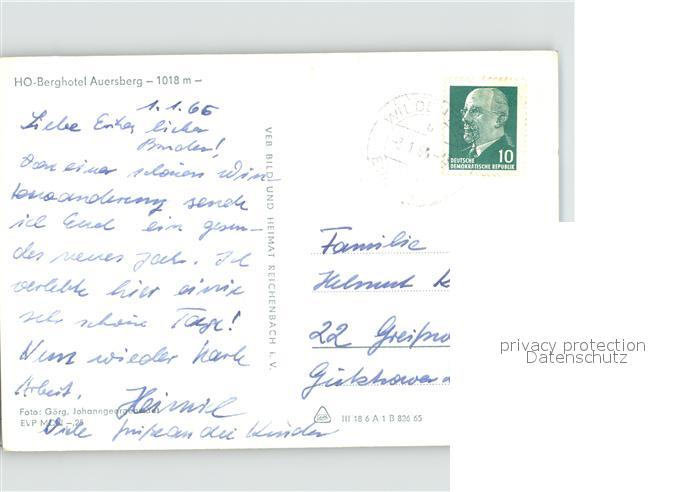 HO-Berghotel Auersberg – 1018 m –
1.1.66
Liebe Erika, lieber
Bruder!
Von einer schönen Win
terwanderung sende
ich Euch ein gesun-
des neues Jahr. Ich
verlebte hier einige
sehr schöne Tage!
Nun wieder harte
Arbeit.
Foto: Görg, Johanngeorgenstadt
EVP MDN –,25
Viele Grüße an die Kinder
VEB BILD UND HEIMAT REICHENBACH i. V.
WILDE
DEUTSCHE
DEMOKRATISCHE REPUBLIK
10
Familie
Helmut K
22 Greifsw
III 18 6 A 1 B 826 65
privacy protection
Datenschutz